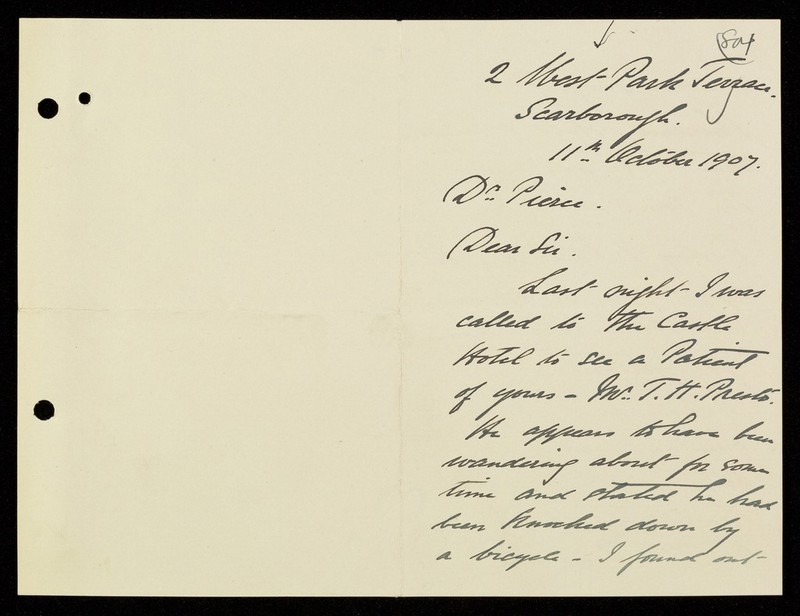 2 West Park Terrace.
Scarborough.
11th October 1907.
Dr. Pierce.
Dear Sir.
Last night I was
called to the Castle
Hotel to see a Patient
of yours - Mr. T. H. Presto.
He appears to have been
wandering about for some
time and stated he had
been knocked down by
a bicycle - I found out